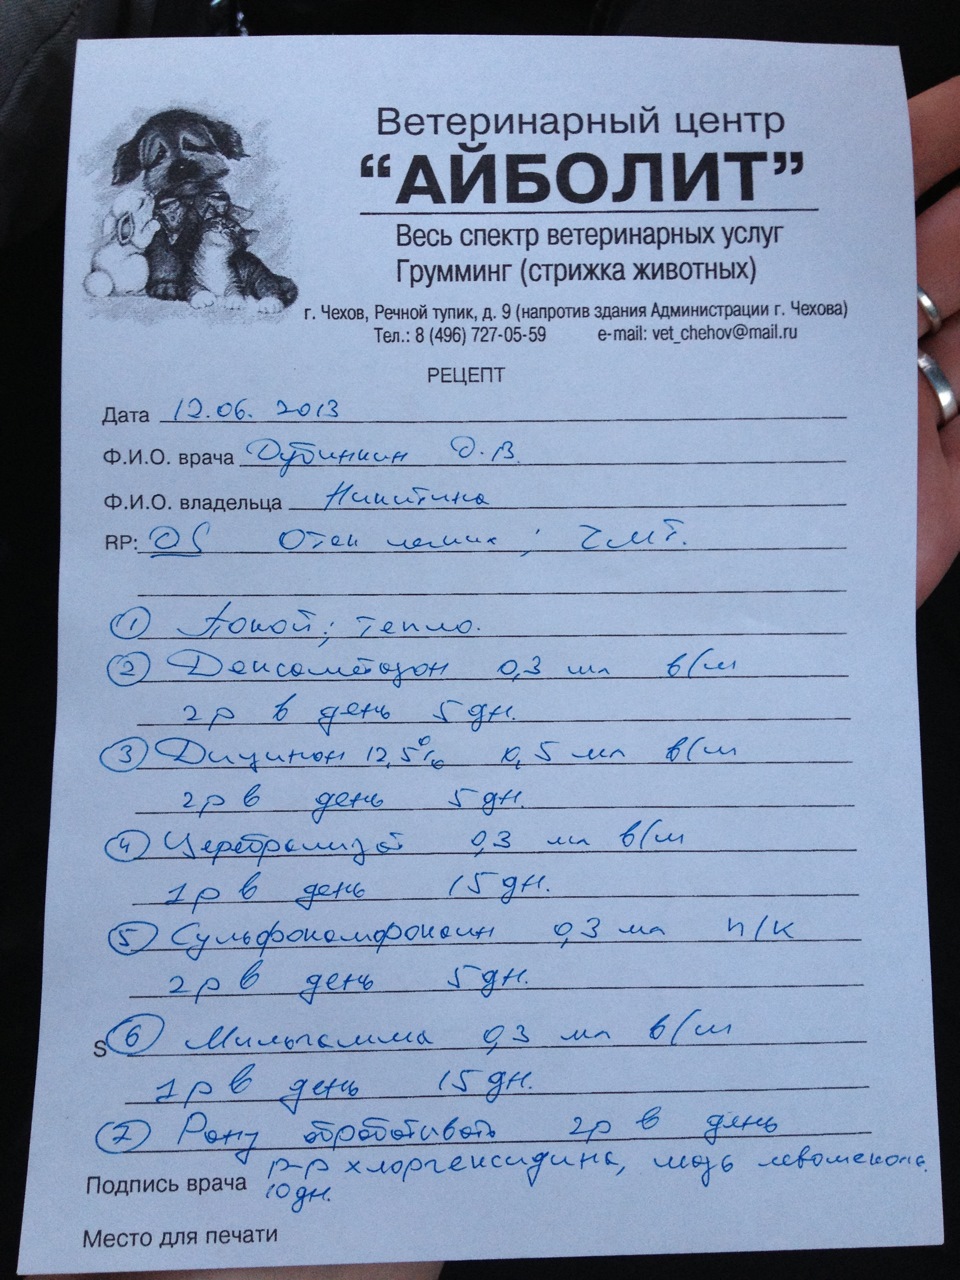 Ветеринарный центр
“АЙБОЛИТ”
Весь спектр ветеринарных услуг
Грумминг (стрижка животных)
г. Чехов, Речной тупик, д. 9 (напротив здания Администрации г. Чехова)
Тел.: 8 (496) 727-05-59 e-mail: vet_chehov@mail.ru
РЕЦЕПТ
Дата 12.06. 2013
Ф.И.О. врача Дубинкин Д.В.
Ф.И.О. владельца Никитина
RP: DS Отек ; ЧМТ.
1 Покой; тепло.
2 Дексаметазон 0,3 мл в/м
2р в день 5 дн.
3 Дицинон 12,5% 0,5 мл в/м
2р в день 5 дн.
4 Церебролизат 0,3 мл в/м
1р в день 15 дн.
5 Сульфокамфокаин 0,3 мл п/к
2р в день 5 дн.
S 6 Мильгамма 0,3 мл в/м
1р в день 15 дн.
7 Рану обрабатывать 2р в день
р-р хлоргексидина, мазь левомеколь
Подпись врача 10 дн.
Место для печати